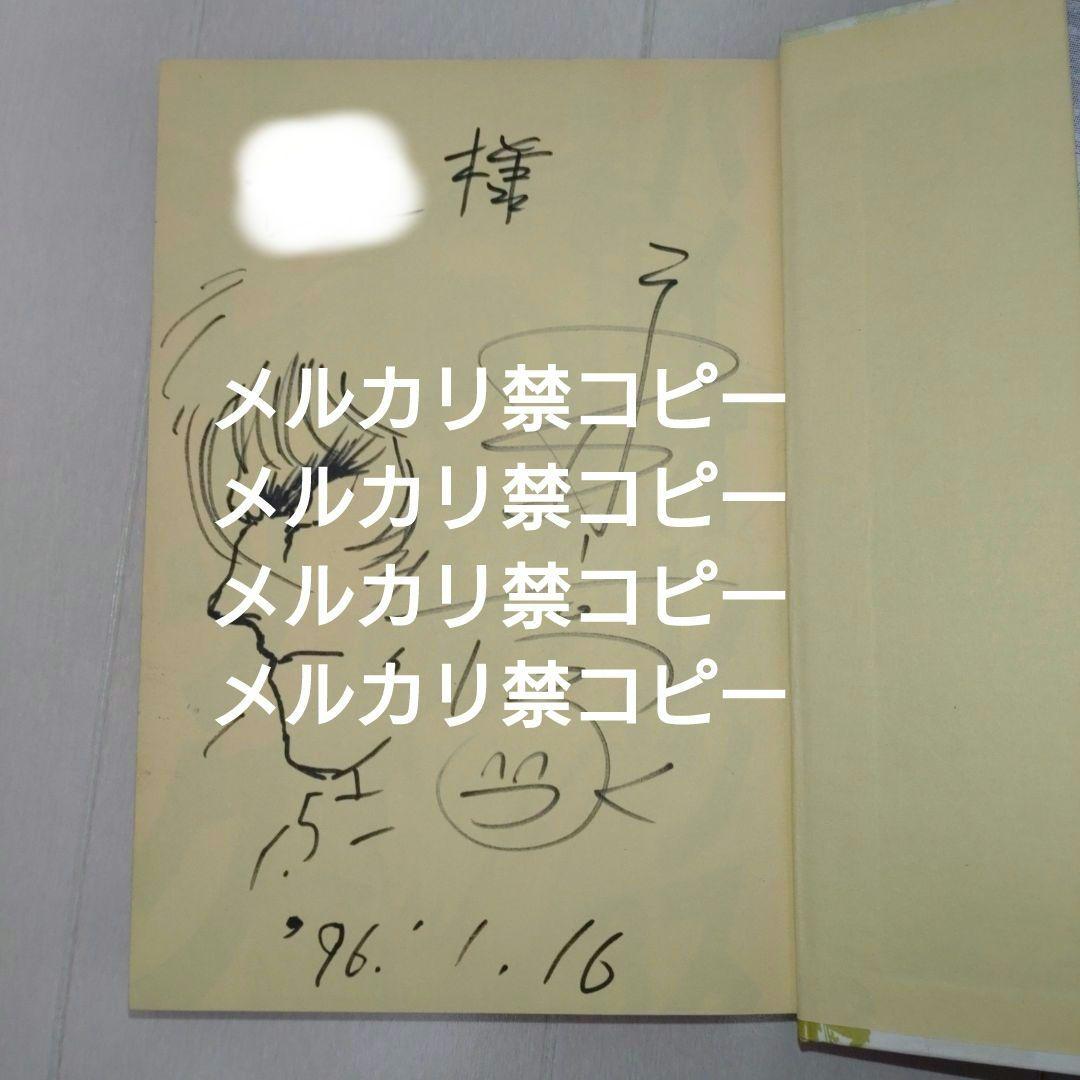 様
メルカリ禁コピー
メルカリ禁コピー
メルカリ禁コピー
メルカリ禁コピー
'96.1.16